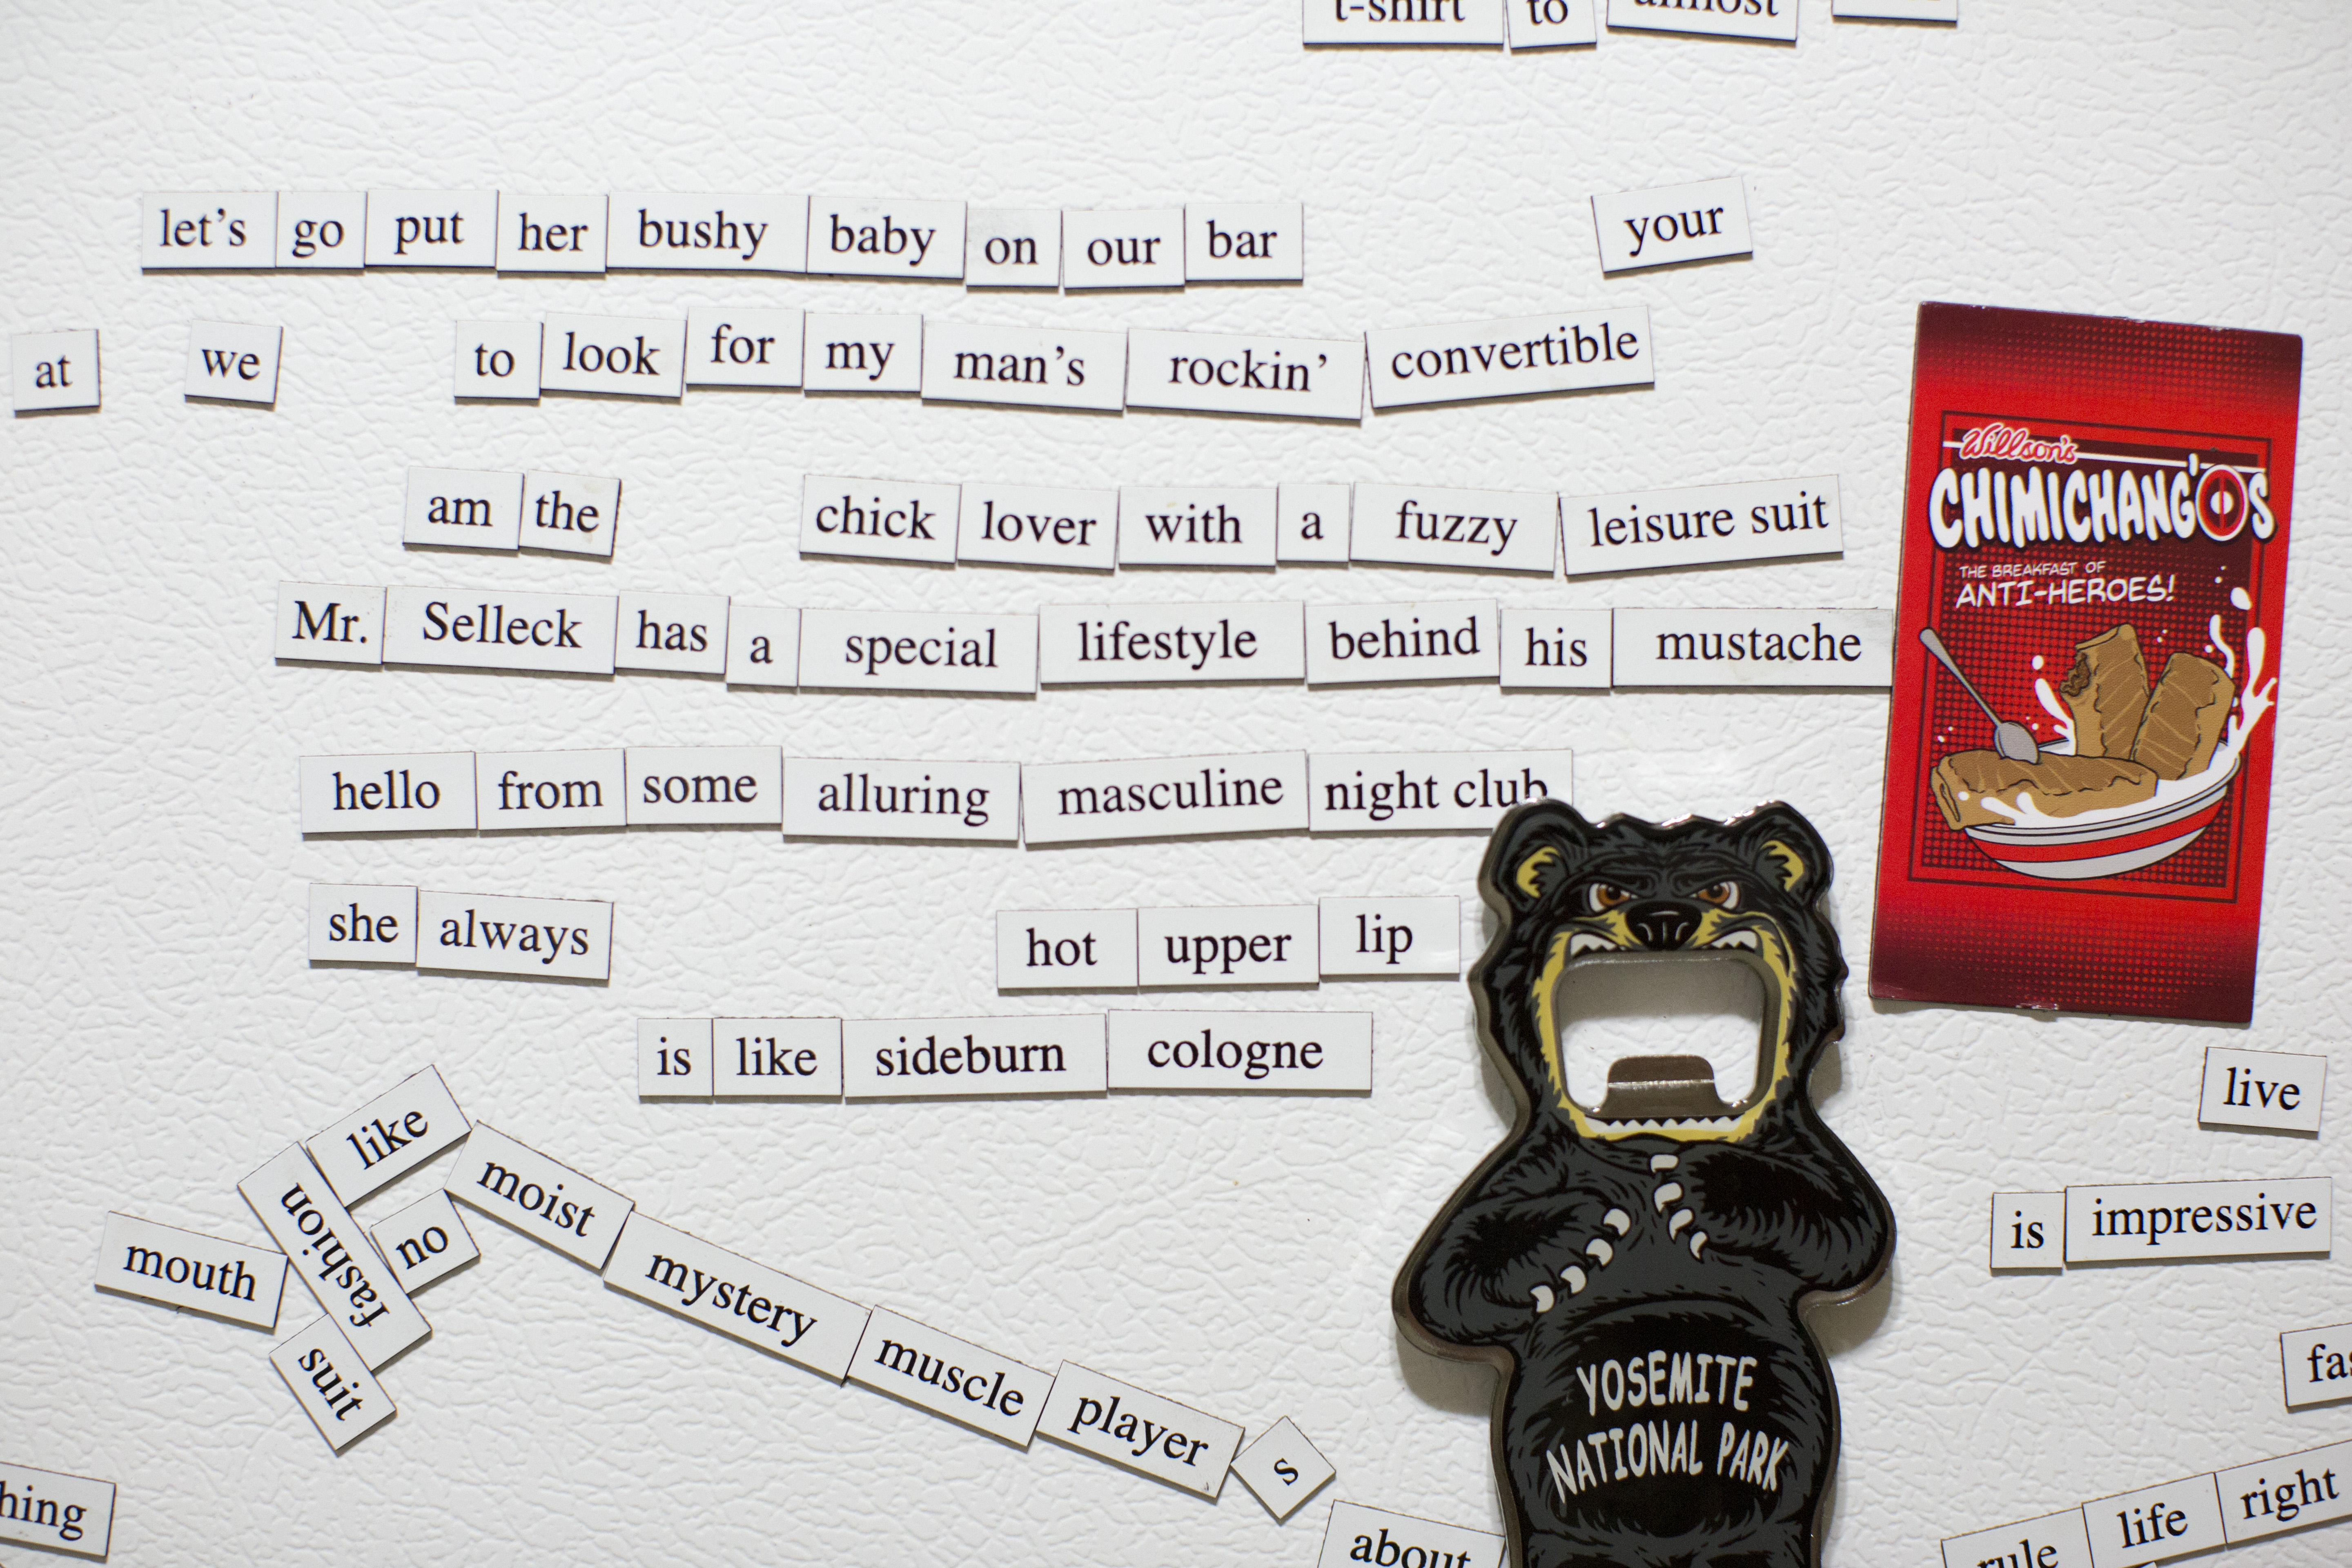 t-shirt to almost
let's go put her bushy baby on our bar your
at we to look for my man's rockin' convertible
am the chick lover with a fuzzy leisure suit
Mr. Selleck has a special lifestyle behind his mustache
hello from some alluring masculine night club
she always hot upper lip
is like sideburn cologne
like
fashion
no
mouth
suit
moist mystery muscle player s
about
Willson's
CHIMICHANG'OS
THE BREAKFAST OF
ANTI-HEROES!
YOSEMITE
NATIONAL PARK
live
is impressive
rule life right